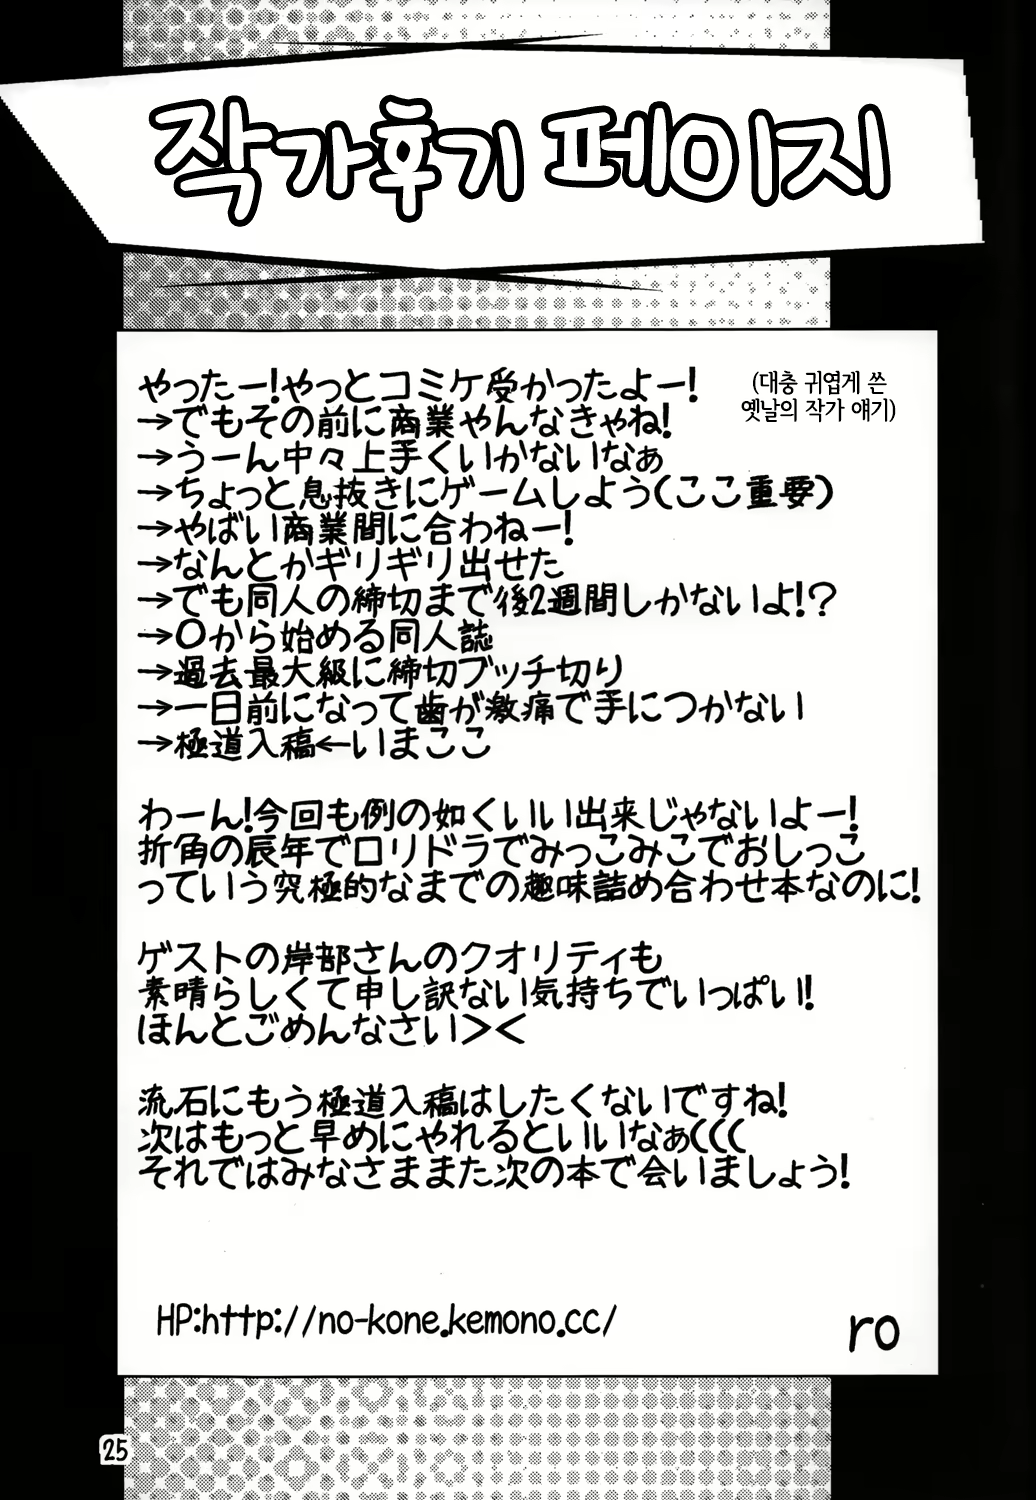 작가후기 페이지
(대충 귀엽게 쓴
옛날의 작가 얘기)
やったー!やっとコミケ受かったよー!
→でもその前に商業やんなきゃね!
→うーん中々上手くいかないなぁ
→ちょっと息抜きにゲームしよう(ここ重要)
→やばい商業間に合わねー!
→なんとかギリギリ出せた
→でも同人の締切まで後2週間しかないよ!?
→〇から始める同人誌
→過去最大級に締切ブッチ切り
→一日前になって歯が激痛で手につかない
→極道入稿←いまここ
わーん!今回も例の如くいい出来じゃないよー!
折角の辰年でロリドラでみっこみこでおしっこ
っていう究極的なまでの趣味詰め合わせ本なのに!
ゲストの岸部さんのクオリティも
素晴らしくて申し訳ない気持ちでいっぱい!
ほんとごめんなさい><
流石にもう極道入稿はしたくないですね!
次はもっと早めにやれるといいなぁ(((
それではみなさままた次の本で会いましょう!
HP:http://no-kone.kemono.cc/
ro
25